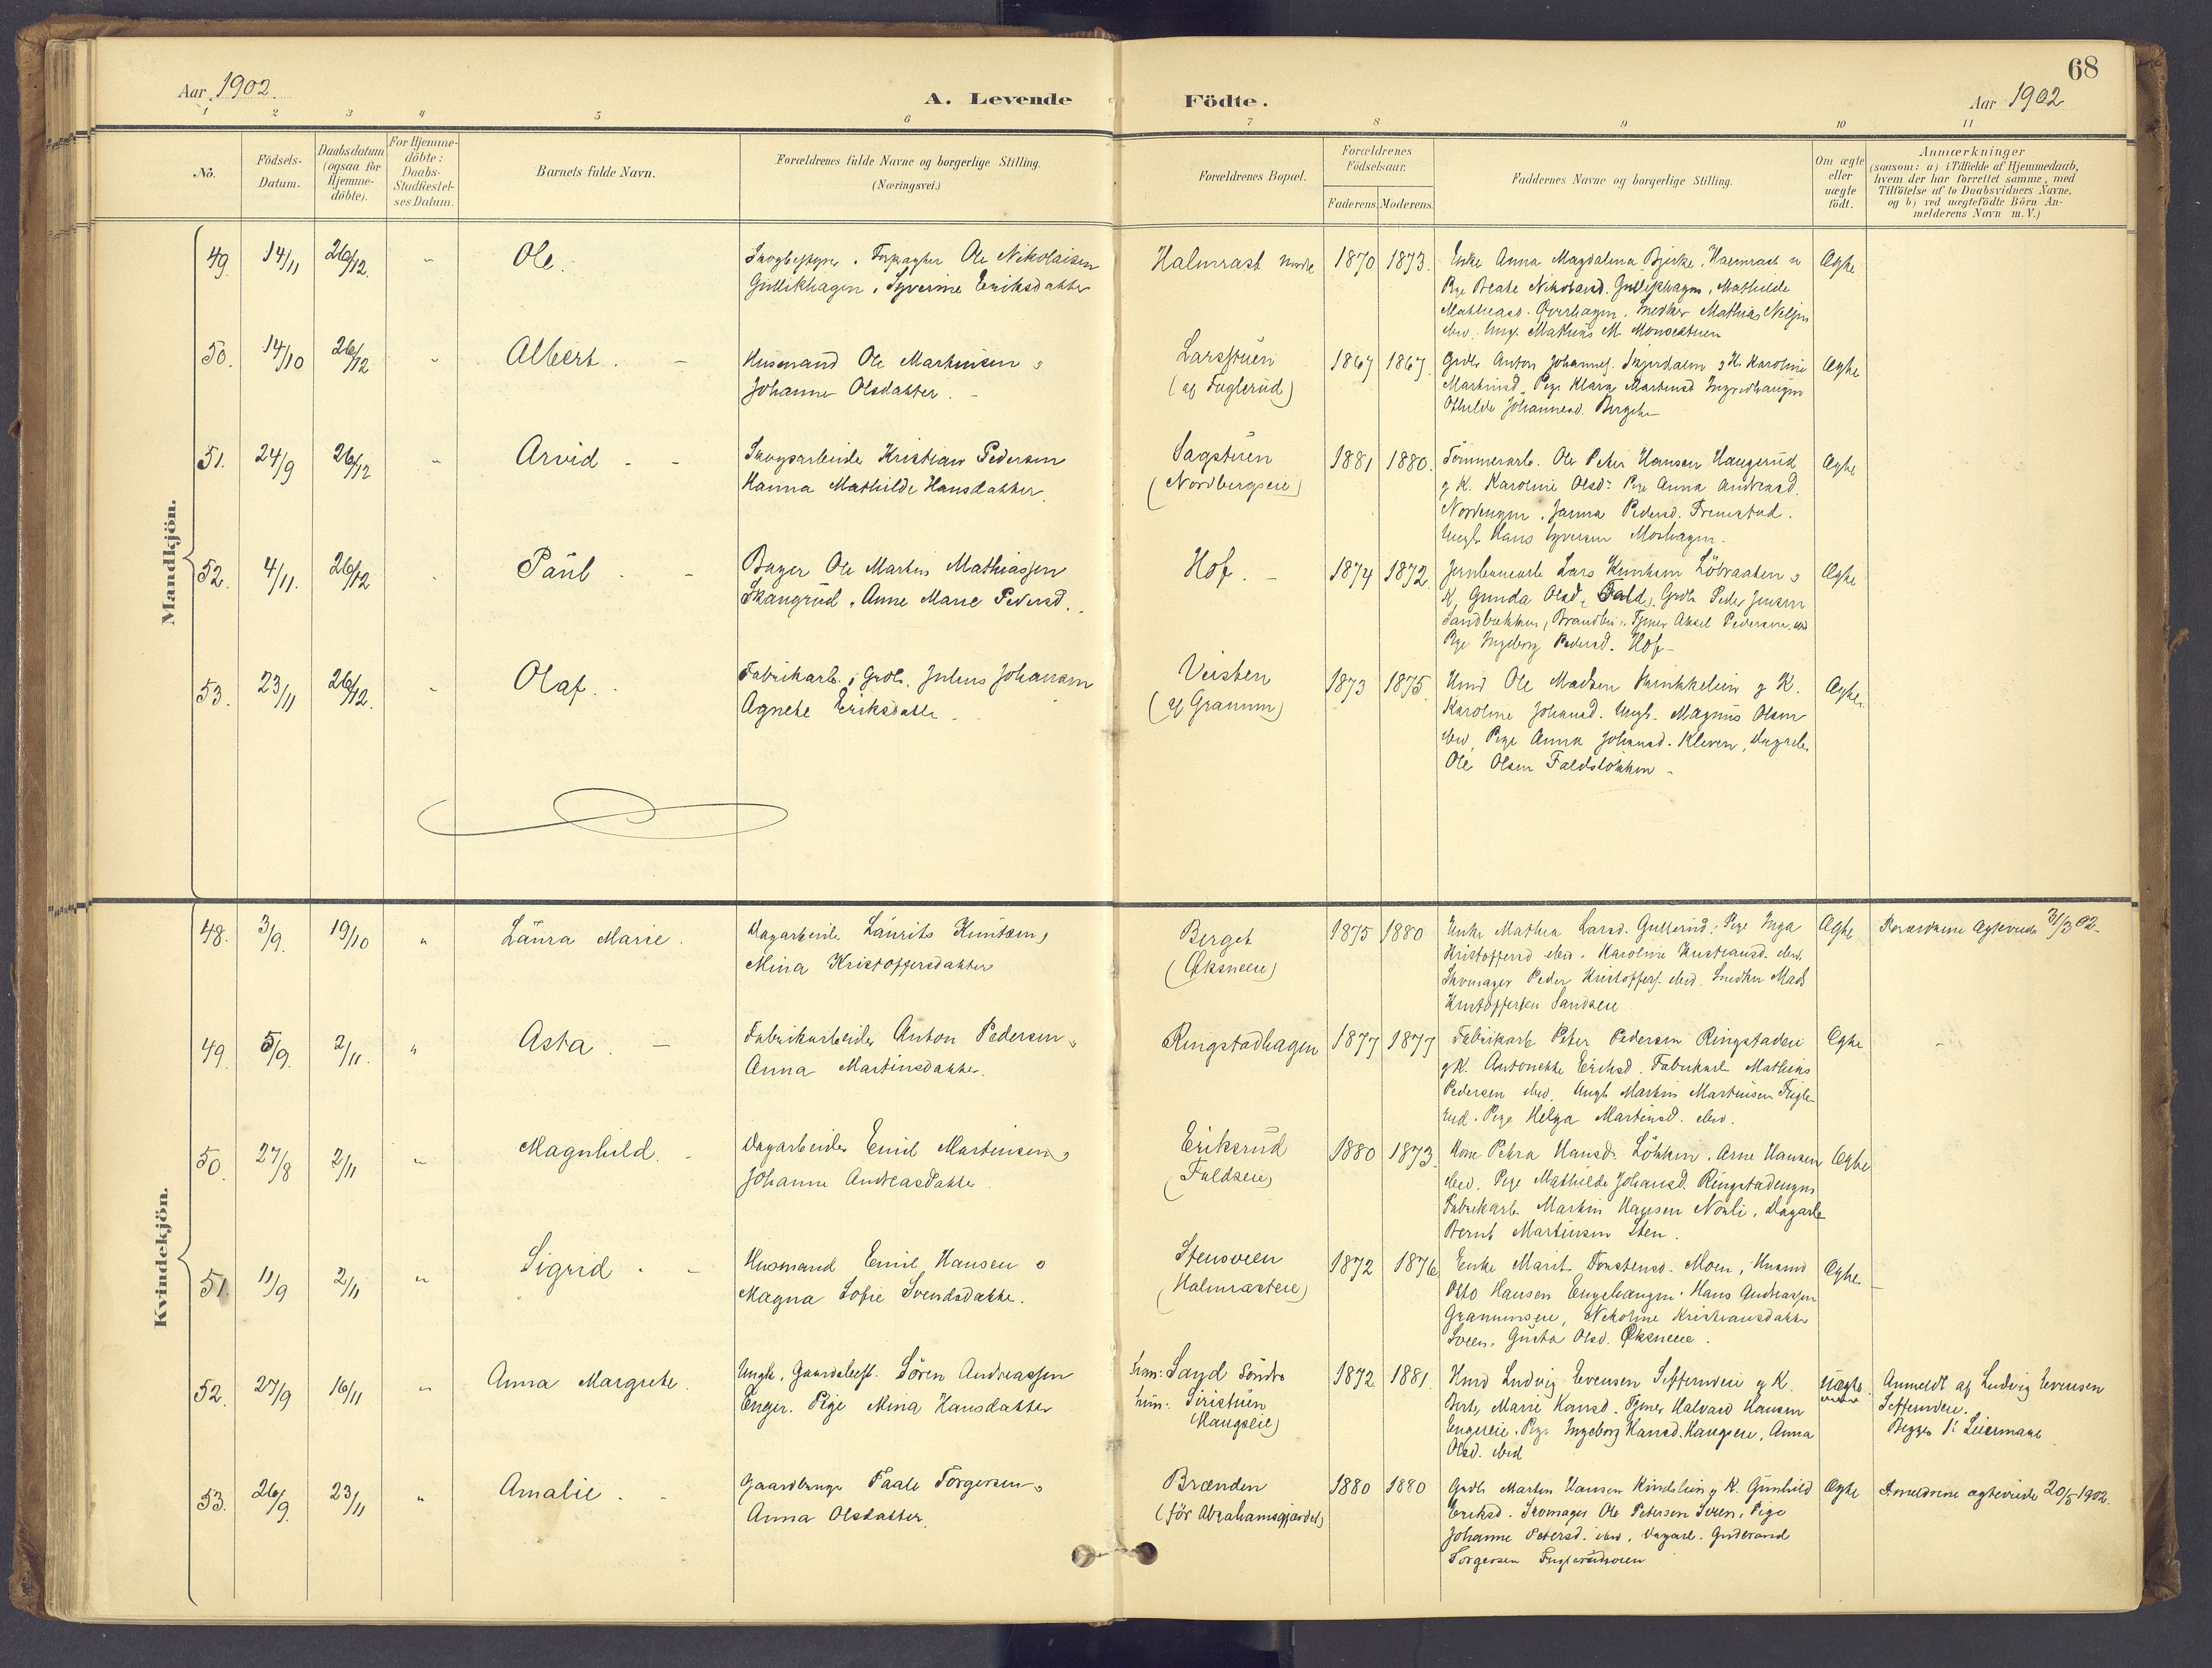 68
Aar 1902.
A. Levende Födte.
Aar 1902
1 2 3 4 5 6 7 8 9 10 11
No.
Födsels-
Datum.
Daabsdatum
(ogsaa for
Hjemme-
döbte).
For Hjemme-
döbte:
Daabs-
Stadfæstel-
ses Datum.
Barnets fulde Navn.
Forældrenes fulde Navne og borgerlige Stilling.
(Næringsvei.)
Forældrenes Bopæl.
Forældrenes
Födselsaar.
Faderens. Moderens.
Faddernes Navne og borgerlige Stilling.
Om ægte
eller
uægte
födt.
Anmærkninger
(saasom: a) i Tilfælde af Hjemmedaab,
hvem der har forrettet samme, med
Tilföielse af to Daabsvidners Navne.
og b) ved uægtefödte Börn An-
melderens Navn m. V.)
Mandkjön.
49. 14/11 26/12. " Ole.
Ole Nikolaisen
Gullikhagen, Syverine Eriksdatter
Halmrast nordre
1870 1873.
Enke Anna Magdalena Bjerke, Halmrast
Pige Beate Nikolaisd. Gullikhagen, Mathilde
Mathiasd. Mathias Nilsen
ebd. Ungk. Mathias M.
Ægte
50. 14/10 26/12 " Albert. -
Husmand Ole Martinsen &
Johanne Olsdatter. -
Larsstuen
(af Fuglerud)
1867 1867.
Grdb. Anton Johannes. K. Karoline
Martinsd. Pige Klara Martinsd
Othilde Johannesd.
Ægte
51. 24/9 26/12 " Arvid - -
Skovarbeider Kristian Pedersen
Hanna Mathilde Hansdatter.
Sagstuen
(Nordbergseie)
1881 1880.
Tömmerarb. Ole Peter Hansen Haugerud
g K. Karoline Olsd. Pige Anna Andreasd.
Janna Pedersd.
Ungk. Hans Syversen Moshagen.
Ægte
52. 4/11. 26/12 Paul. -
Bager Ole Martin Mathiassen
Skaugrud, Anne Marie Pedersd.
Hof. -
1874 1872.
Lars Knutsen Löbraaten &
K, Gunda Olsd, Fald, Grdb. Peder Jensen
Tjener Aksel Pedersen,
Pige Ingeborg Pedersd. Hof-
Ægte
53. 23/11 26/12. " Olaf. -
Fabrikarb. & Grdb. Julius Johansen
Agnete Eriksdatter.
Veisten
(af Granum)
1873 1875
Hmd Ole Madsen g K.
Karoline Johansd. Ungk. Magnus Olsen
ebd, Pige Anna Johansd. Kleven, Dagarb.
Ole Olsen Faldslökken -
Ægte
Kvindekjön.
48. 3/9. 19/10 " Laura Marie.
Dagarbeider Laurits Knutsen &
Mina Kristoffersdatter
Berget
(Öksneeie)
1875 1880
Enke Mathea Larsd. Gullerud, Pige Inga
Kristoffersd ebd. Karoline Kristiansd. ebd,
Skomager Peder Kristoffers. ebd. Mads
Kristoffersen Sandseie
Ægte
Forældrene Ægteviede 31/3 02.
49. 5/9. 2/11. " Asta. -
Fabrikarbeider Anton Pedersen &
Anna Martinsdatter.
Ringstadhagen
1877 1877
Fabrikarb Peter Pedersen Ringstadeie
g K. Antonette Eriksd. Fabrikarb. Mathias
Pedersen ebd. Ungk Martin Martinsen Fugle-
rud. Pige Helga Martinsd. ebd.
Ægte
50. 27/8 2/11 " Magnhild. -
Dagarbeider Emil Martinsen &
Johanne Andreasdatter.
Eriksrud
(Faldseie)
1880 1873.
Kone Petra Hansd. Lökken, Arne Hansen
ebd. Pige Mathilde Johansd. Ringstadengen
Fabrikarb. Martin Hansen Nordli, Dagarb
Bernt Martinsen Sten.
Ægte
51. 11/9 2/11 " Sigrid. -
Husmand Emil Hansen &
Magna Sofie Svendsdatter.
Stensveen
(Halmrasteie)
1872 1876
Enke Marit Torstensd. Moen, Husmd
Otto Hansen Engehaugen. Hans Andreassen
Granumseie, Nikoline Kristiansdatter
Sveen. Gusta Olsd. Öksneeie.
Ægte.
52. 27/9 16/11 " Anna Margrete.
Ungk. Gaardsbest. Sören Andreassen
Enger. Pige Mina Hansdatter
han: Sayd söndre
hun: Siristuen
(Haugseie)
1872. 1881.
Hmd Ludvig Evensen g K.
Berte Marie Hansd. Tjener Halvard Hansen
Engereie. Pige Ingeborg Hansd. Haugseie, Anna
Olsd. ebd
Uægte.
Anmeldt af Ludvig Evensen
Begges 1ste Leiermaal
53. 26/9. 23/11 " Amalie. -
Gaardbruger Paale Torgersen &
Anna Olsdatter.
Brænden
(för Abrahamsgjærdet)
1880 1880
Grdb Martin Hansen g K. Gunhild
Eriksd. Skomager Ole Petersen Sveen, Pige
Johanne Petersd. ebd, Dagarb. Gudbrand
Torgersen Fuglerudsveen
Ægte
Forældrene ægteviede 20/5 1902.